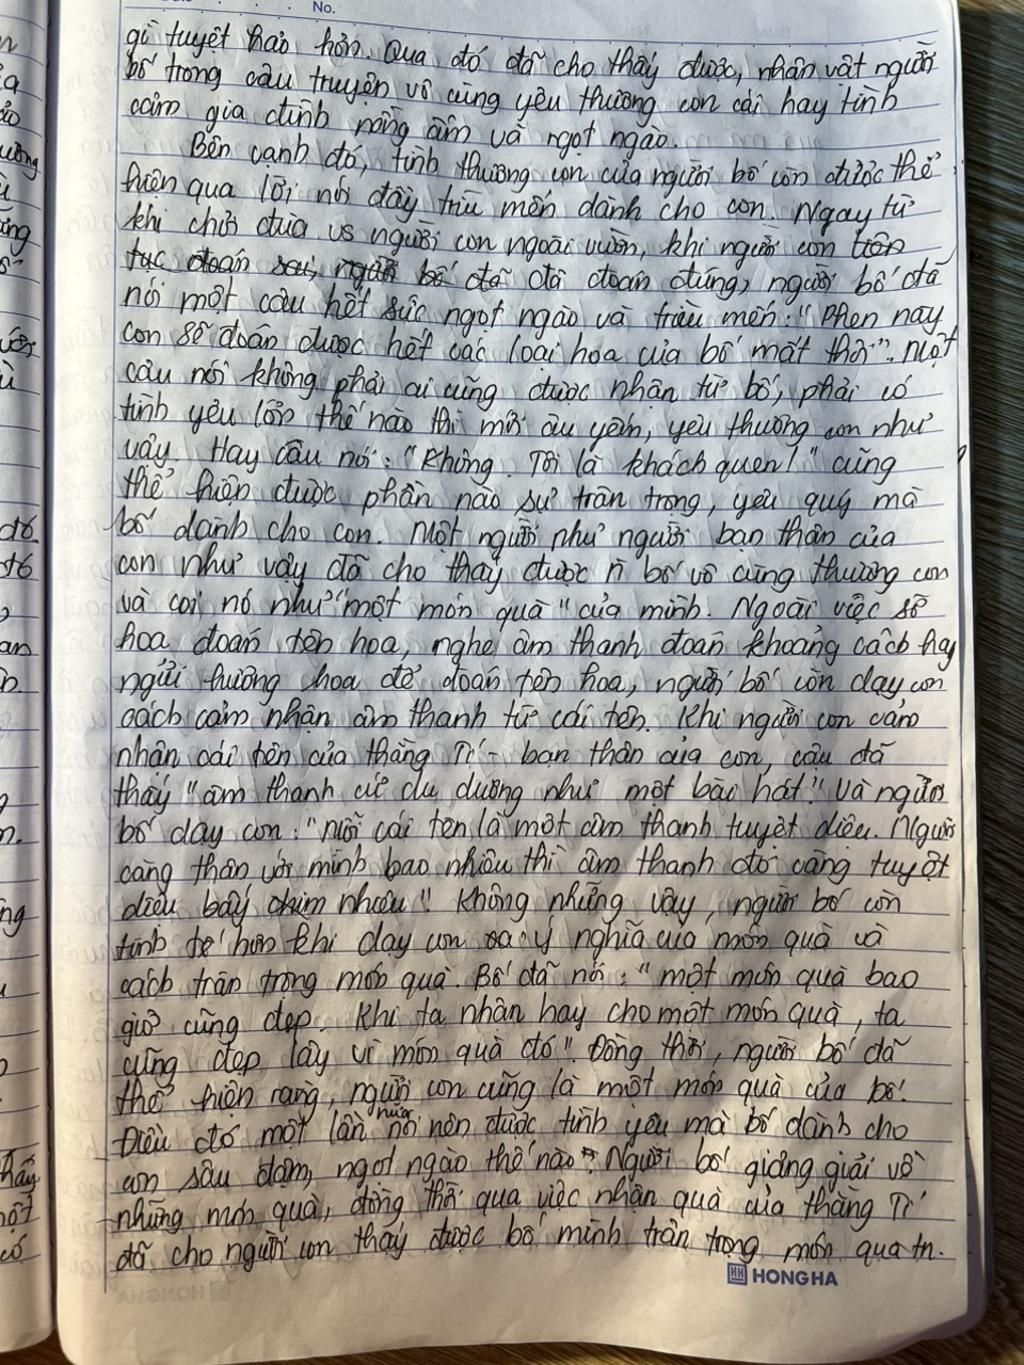 No.
gì tuyệt hảo hơn. Qua đó đã cho thấy được, nhân vật người
bố trong câu truyện vô cùng yêu thương con cái hay tình
cảm gia đình nồng ấm và ngọt ngào.
Bên cạnh đó, tình thương con của người bố còn được thể
hiện qua lời nói đầy trìu mến dành cho con. Ngay từ
khi chơi đùa vs người con ngoài vườn, khi người con
đã đoán đúng, người bố đã
nói một câu hết sức ngọt ngào và trìu mến: "Phen này
con sẽ đoán được hết các loại hoa của bố mất thôi". Một
câu nói không phải ai cũng được nhận từ bố, phải có
tình yêu lớn thế nào thì mới âu yếm, yêu thương con như
vậy. Hay câu nói: "Không. Tôi là khách quen!" cũng
thể hiện được phần nào sự trân trọng, yêu quý mà
bố dành cho con. Một người như người bạn thân của
con như vậy đã cho thấy được n bố vô cùng thương con
và coi nó như "một món quà" của mình. Ngoài việc sờ
hoa đoán tên hoa, nghe âm thanh đoán khoảng cách hay
ngửi hương hoa để đoán tên hoa, người bố còn dạy con
cách cảm nhận âm thanh từ cái tên. Khi người con cảm
nhận cái tên của thằng Tí - bạn thân của con, cậu đã
thấy "âm thanh cứ du dương như một bài hát". Và người
bố dạy con: "mỗi cái tên là một âm thanh tuyệt diệu. Người
càng thân với mình bao nhiêu thì âm thanh đó càng tuyệt
diệu bấy nhiêu". Không những vậy, người bố còn
tinh tế hơn khi dạy con ý nghĩa của món quà và
cách trân trọng món quà. Bố đã nói: "một món quà bao
giờ cũng đẹp. Khi ta nhận hay cho một món quà, ta
cũng đẹp lây vì món quà đó". Đồng thời, người bố đã
thể hiện rằng, người con cũng là một món quà của bố.
Điều đó một lần nữa nói nên được tình yêu mà bố dành cho
con sâu đậm, ngọt ngào thế nào? Người bố giảng giải về
những món quà, đồng thời qua việc nhận quà của thằng Tí
đã cho người con thấy được bố mình trân trọng món quà tn.
HH HONG HA